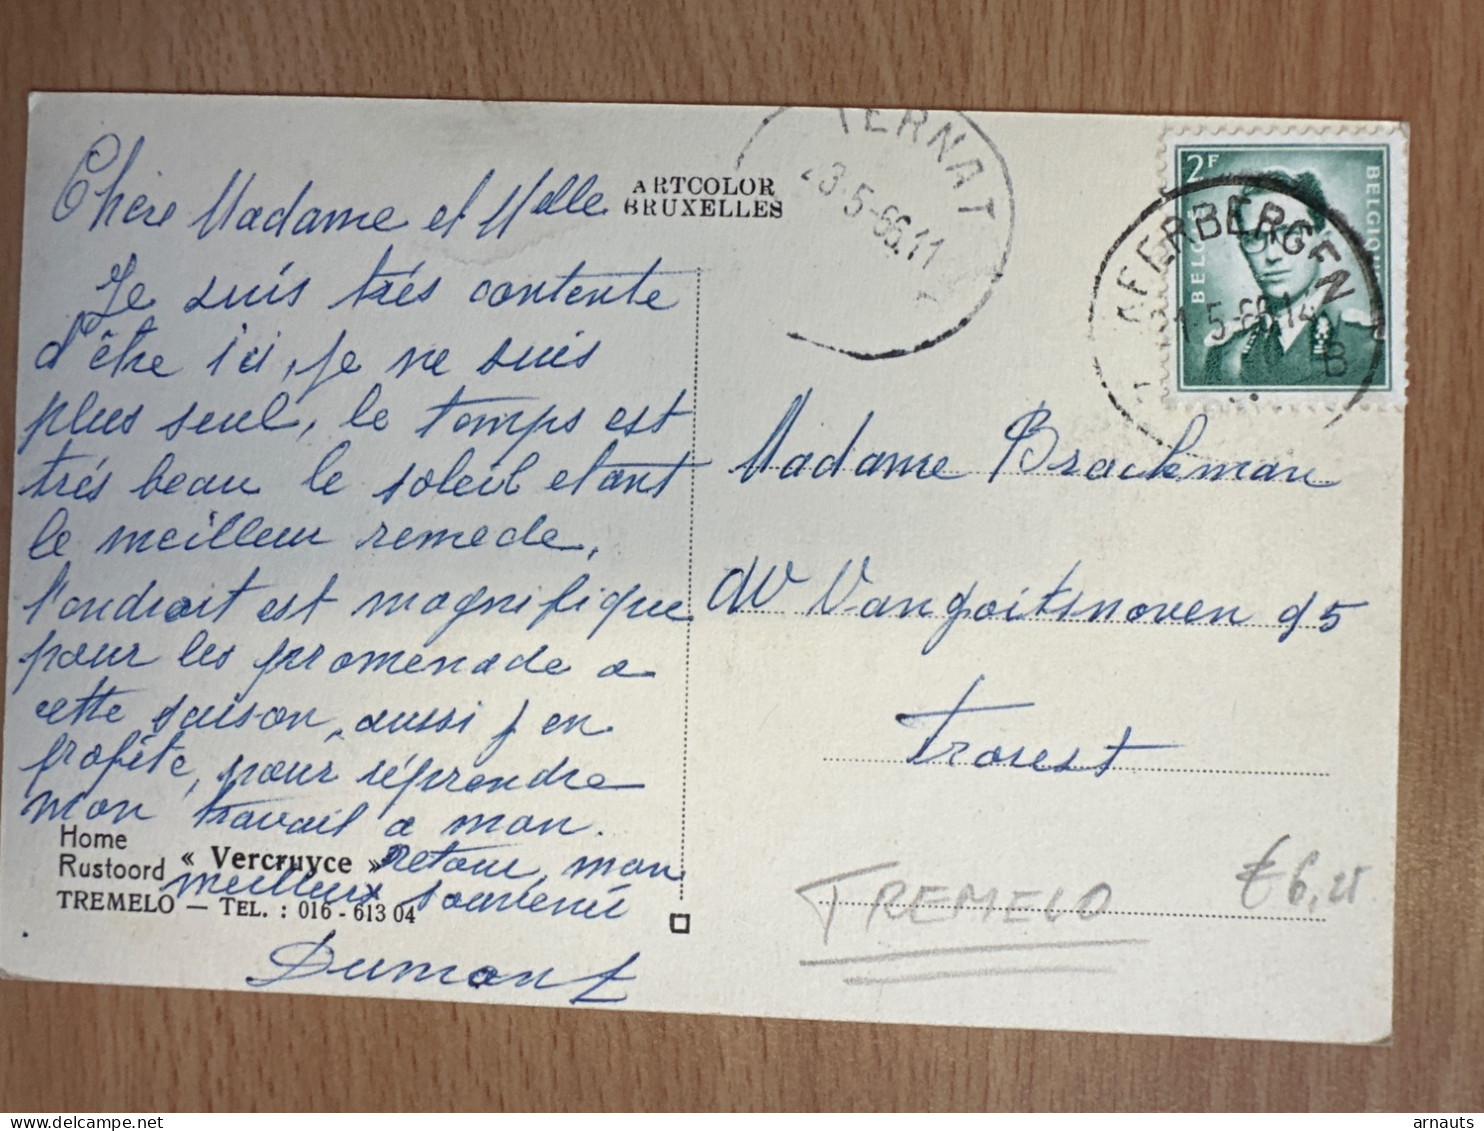 Chère Madame et Melle
Je suis très contente
d'être ici, je ne suis
plus seul, le temps est
très beau le soleil etant
le meilleur remede,
l'endroit est magnifique
pour les promenade a
cette saison, aussi j en
profite, pour réprendre
mon travail a mon
retour, mon
meilleux souvenir
Dumont
Home
Rustoord « Vercruyce »
TREMELO — TEL. : 016 - 613 04
ARTCOLOR
BRUXELLES
TERNAT
23-5-66.11
2F
BELGIQUE
KEERBERGEN
5-66.14
B
Madame Brackman
95
Trorest
TREMELO
€6,
arnauts